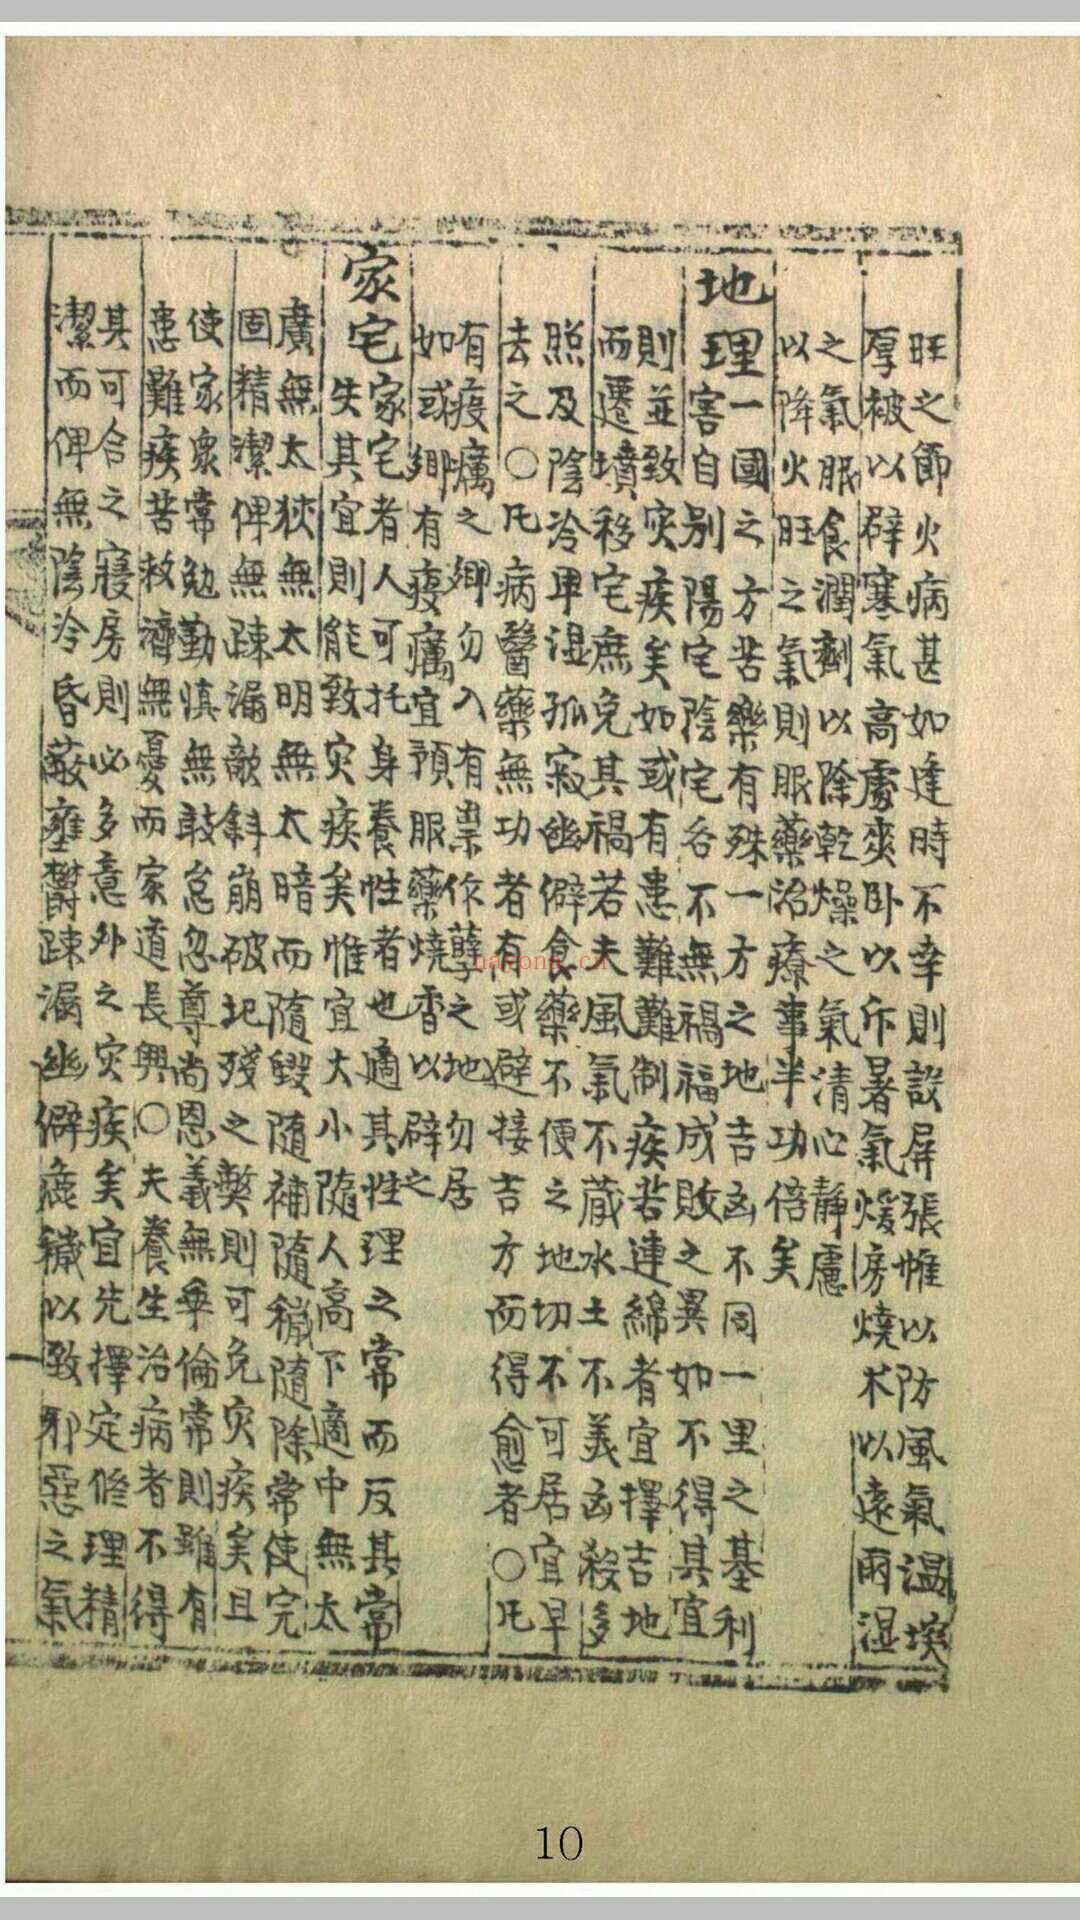 旺之節火病甚如逢時不幸則設屏張帷以防風氣温埃
厚被以辟寒氣高處爽卧以斥暑氣煖房燒术以遠雨湿
之氣服食潤劑以除乾燥之氣清心靜慮
以降火旺之氣則服藥治療事半功倍矣
地理
一國之方苦樂有殊一方之地吉凶不同一里之基利
害自別陽宅陰宅各不無禍福成敗之異如不得其宜
則並致灾疾矣如或有患難難制疾若連綿者宜擇吉地
而遷墳移宅庶免其禍若夫風氣不藏水土不美凶殺多
照及陰冷卑湿孤寂幽僻食藥不便之地切不可居宜早
去之〇凡病醫藥無功者有或避接吉方而得愈者〇凡
有疫癘之鄉勿入有祟作孽之地勿居
如或鄉有疫癘宜預服藥燒香以辟之
家宅
家宅者人可托身養性者也適其性理之常而反其常
失其宜則能致灾疾矣惟宜大小隨人高下適中無太
廣無太狹無太明無太暗而隨毀隨補隨穢隨除常使完
固精潔俾無踈漏敧斜崩破圮殘之獘則可免灾疾矣且
使家衆常勉勤慎無敢怠忽尊尚恩義無乖倫常則雖有
患難疾苦救濟無憂而家道長興〇夫養生治病者不得
其可合之寢房則必多意外之灾疾矣宜先擇定修理精
潔而俾無陰冷昏蔽壅鬱踈漏幽僻麁穢以致邪惡之氣
10
nayona.cn